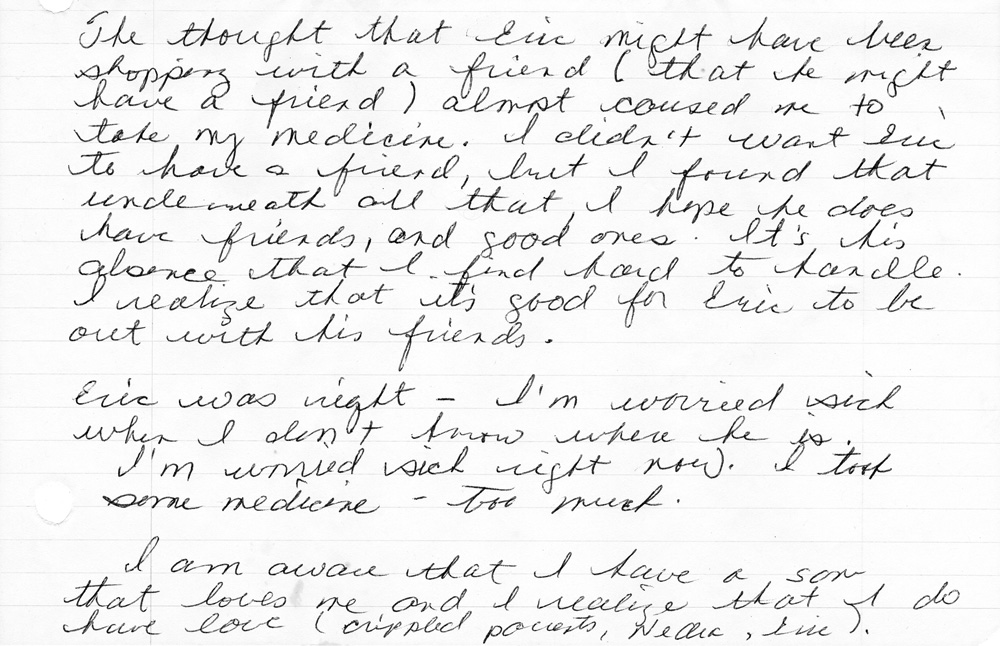 The thought that Eric might have been
shopping with a friend (that he might
have a friend) almost caused me to
take my medicine. I didn't want Eric
to have a friend, but I found that
underneath all that, I hope he does
have friends, and good ones. It's his
absence that I find hard to handle.
I realize that it's good for Eric to be
out with his friends.
Eric was right - I'm worried sick
when I don't know where he is.
I'm worried sick right now. I took
some medicine - too much.
I am aware that I have a son
that loves me and I realize that I do
have love (crippled parents, Nedra, Eric).